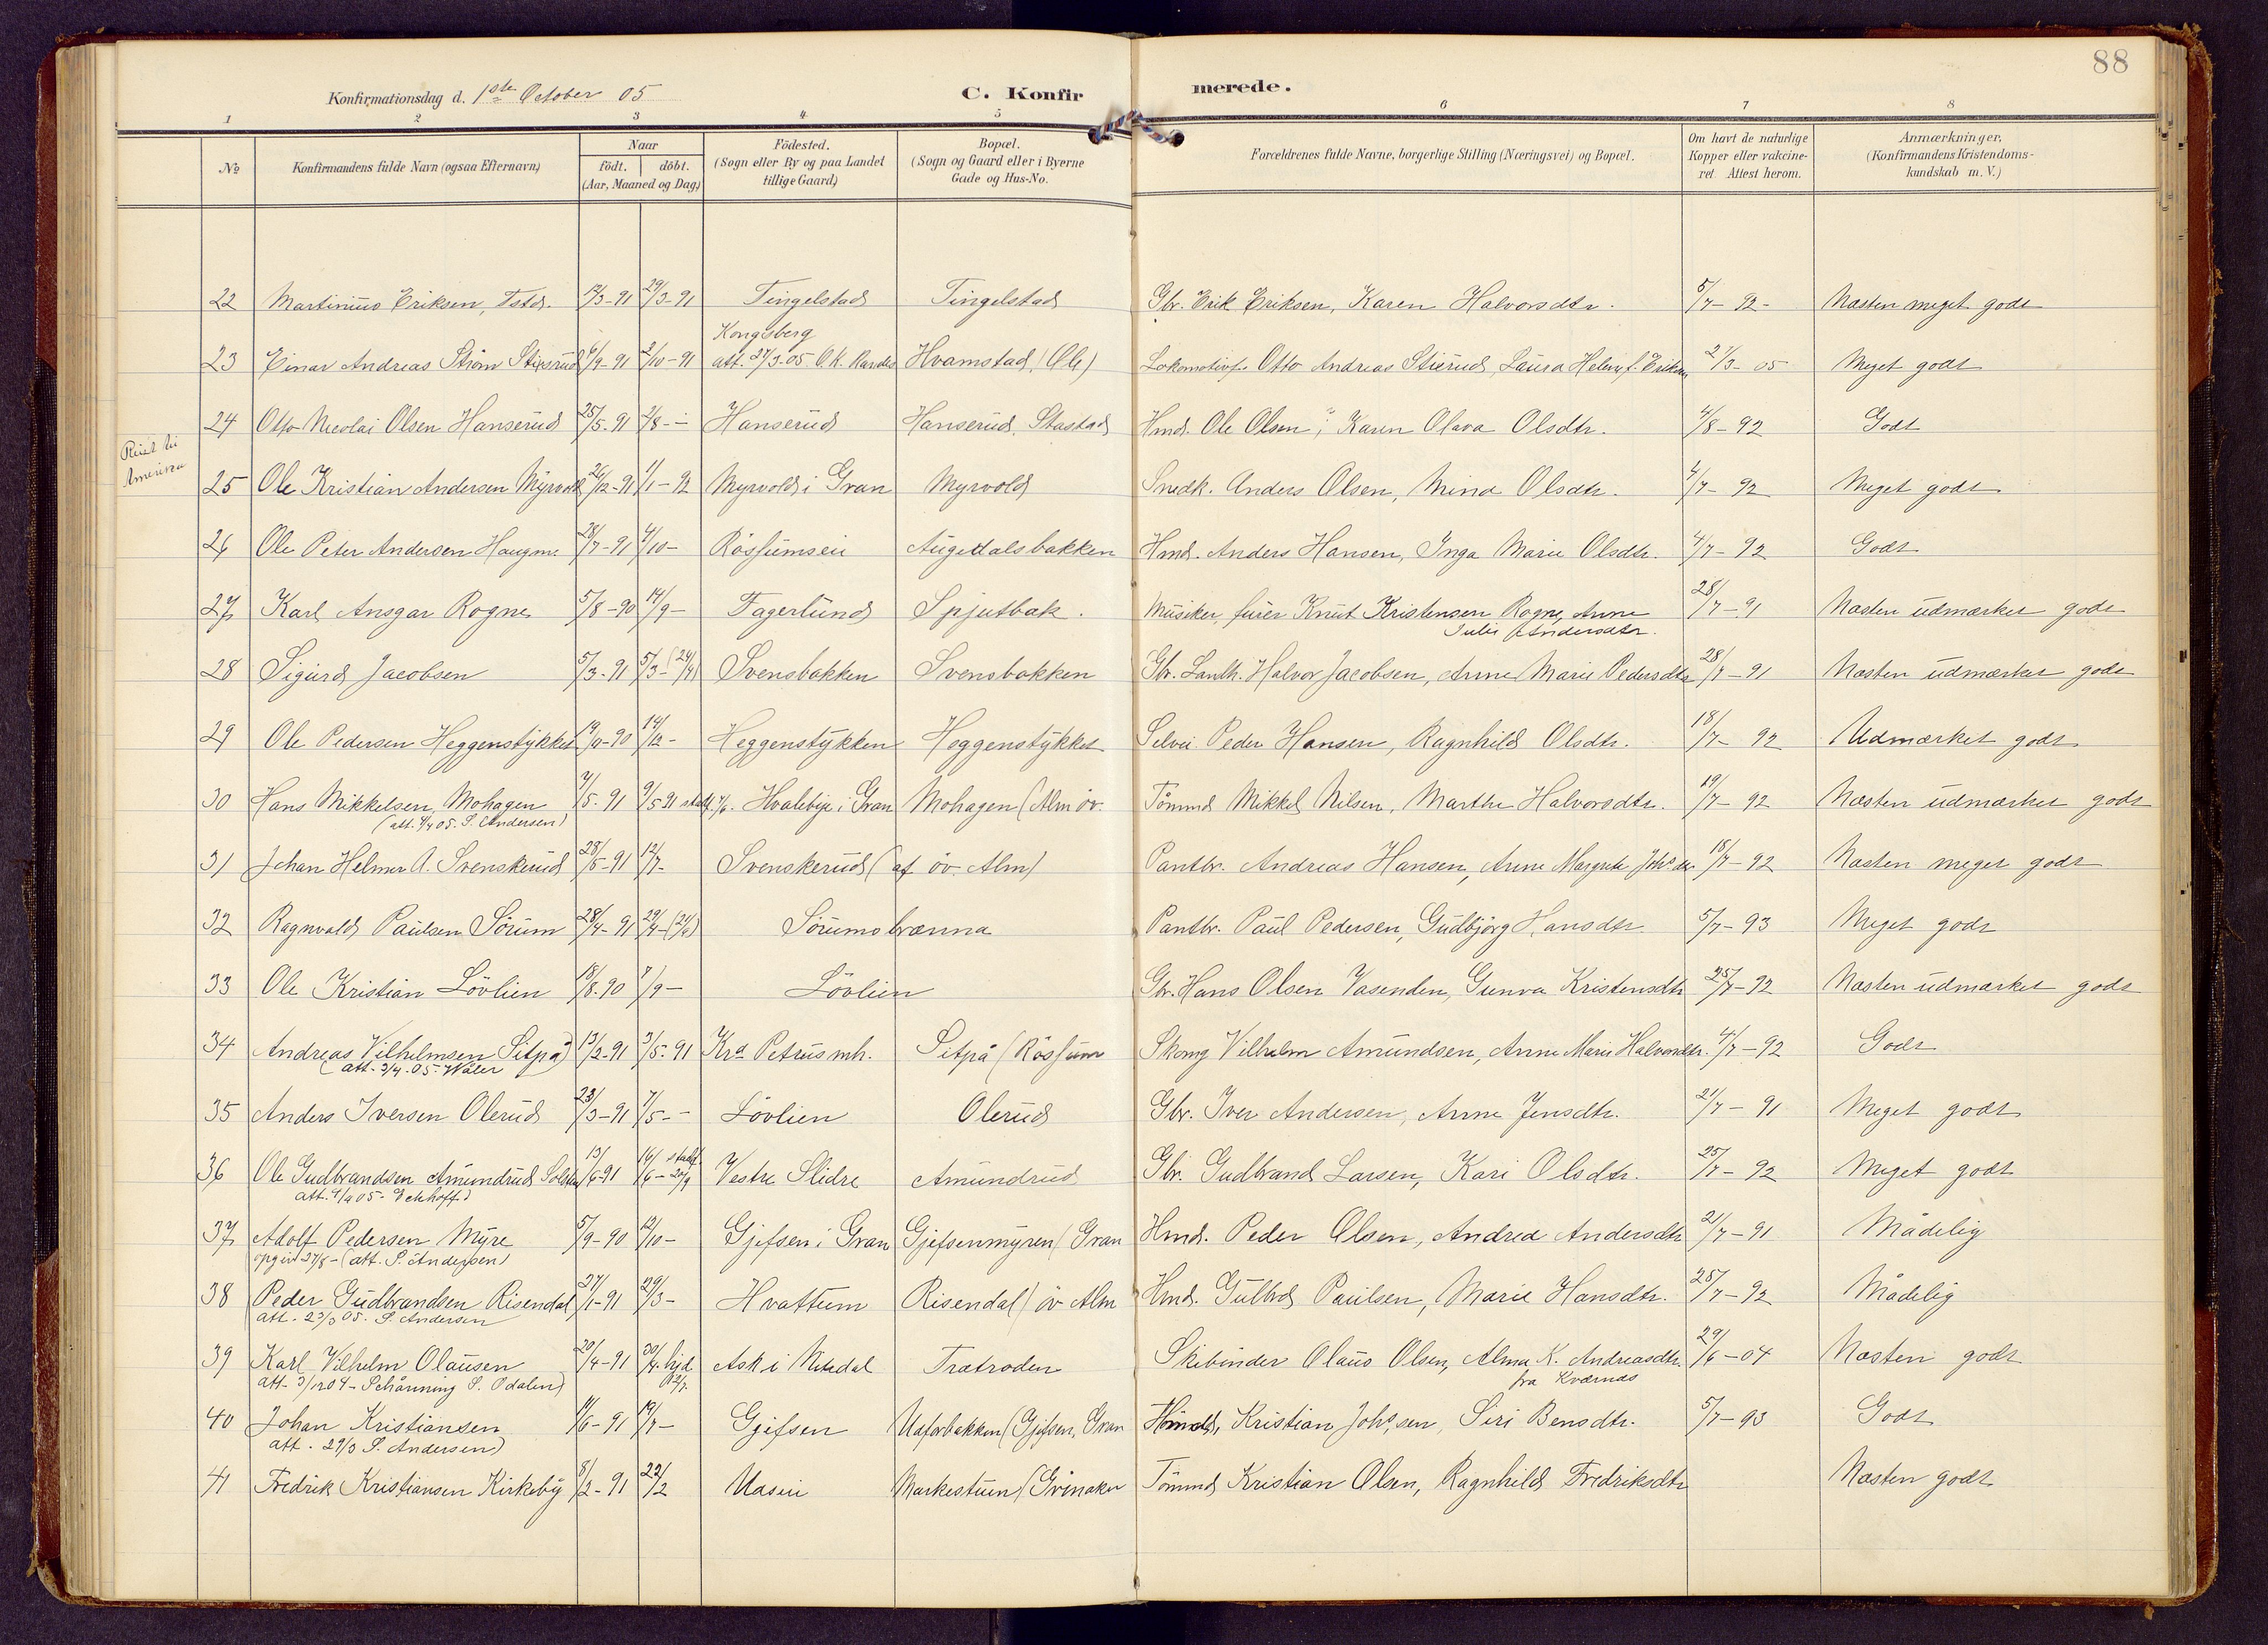 88
Konfirmationsdag d. 1ste October 05
C. Konfirmerede.
1 2 3 4 5 6 7 8
No
Konfirmandens fulde Navn (ogsaa Efternavn)
Naar
födt. döbt.
(Aar, Maaned og Dag)
Födested.
(Sogn eller By og paa Landet
tillige Gaard)
Bopæl.
(Sogn og Gaard eller i Byerne
Gade og Hus-No.
Forældrenes fulde Navne, borgerlige Stilling (Næringsvei) og Bopæl.
Om havt de naturlige
Kopper eller vakcine-
ret Attest herom.
Anmærkninger.
(Konfirmandens Kristendoms-
kundskab m. V.)
22 Martinius Eriksen, Tstd. 12/3-91 29/3-91 Tingelstad Tingelstad Gbr. Erik Eriksen, Karen Halvorsdtr. 5/7-92- Næsten meget godt
Kongsberg
23 Einar Andreas Ström 6/9-91 2/10-91 att. 27/3-05. Hvamstad (Ole) Otto Andreas Stixrud, Laura 27/3-05 Meget godt
24 Otto Nicolai Olsen Hanserud 25/5-91 2/8-- Hanserud Hanserud, Stastad Hmd. Ole Olsen, Karen Olava Olsdtr. 4/8-92 Godt
Reist til
Amerika
25 Ole Kristian Andersen Myrvold 26/12-91 1/1-92 Myrvold i Gran Myrvold Snedk. Anders Olsen, Mina Olsdtr. 4/7-92 Meget godt
26 Ole Peter Andersen 28/7-91 4/10- Rössumseie Augedalsbakken Hmd. Anders Hansen, Inga Marie Olsdtr. 4/7-92 Godt
27 Karl Ansgar Rogne 5/8-90 14/9- Fagerlund Spjutbak. Musiker, Knut Kristensen Rogne, Anne
Julie Andersdtr. 28/7-91 Næsten udmærket godt
28 Sigurd Jacobsen 5/3-91 5/3-(24/4) Svensbakken Svensbakken Gbr. Landh. Halvor Jacobsen, Anne Marie Pedersdtr 28/7-91 Næsten udmærket godt
29 Ole Pedersen Heggenstykket 19/9-90 14/12- Heggenstykken Heggenstykket Selvei. Peder Hansen, Ragnhild Olsdtr. 18/7-92 Udmærket godt
30 Hans Mikkelsen Mohagen 7/5-91 9/5 91 Hvalebye i Gran Mohagen (Alm öv. Tömmd Mikkel Nilsen, Marthe Halvorsdtr. 19/7-92 Næsten udmærket godt
(att. 4/4 05. S. Andersen)
31 Johan Helmer A. Svenskerud 28/5-91 12/7- Svenskerud (af öv. Alm) Pantbr. Andreas Hansen, Anne Margrete Johsdtr. 18/7-92 Næsten meget godt
32 Ragnvald Paulsen Sörum 28/4-91 29/4-(21/9) Sörumsbrænna Pantbr. Paul Pedersen, Gudbjörg Hansdtr 5/7-93 Meget godt
33 Ole Kristian Lövlien 18/8-90 7/9- Lövlien Gbr. Hans Olsen Vasenden, Gunva Kristensdtr 25/7-92 Næsten udmærket godt
34 Andreas Vilhelmsen Sitpå 13/2-91 3/5-91 Kra Petrus mh. Sitpå (Rössum Skomg Vilhelm Amundsen, Anne Marie Halvorsdtr. 4/7-92 Godt
(att. 3/4.05. Våler
35 Anders Iversen Olerud 23/3-91 7/5-- Lövlien Olerud Gbr. Iver Andersen, Anne Jensdtr. 21/7-91 Meget godt
36 Ole Gudbrandsen Amundrud 13/6-91 14/6- stadf. 20/9 Vestre Slidre Amundrud Gbr. Gudbrand Larsen, Kari Olsdtr. 25/7-92 Meget godt
att. 4/9 05. Eckhoff)
37 Adolf Pedersen Myre 5/9-90 12/10- Gjefsen i Gran Gjefsenmyren (Gran Hmd. Peder Olsen, Andrea Andersdtr 21/7-91 Mådelig
opgivet 27/8-(att. S. Andersen)
38 Peder Gudbrandsen Risendal 27/1-91 29/3- Hvattum Risendal) öv Alm Hmd. Gulbrd Paulsen, Marie Hansdtr. 25/7-92 Mådelig
att. 23/3 05. S. Andersen
39 Karl Vilhelm Olausen 20/4-91 30/4. hjd 12/7. Ask i Nitedal Trætroden Skibinder Olaus Olsen, Alma K. Andreasdtr.
fra Kværnås 29/6-04 Næsten godt
att. 3/12 04 - Schånning S. Odalen)
40 Johan Kristiansen 11/6-91 19/7- Gjefsen (Gjefsen, Gran Hmd, Kristian Johssen, Siri Bensdtr. 5/7-93 Godt
att. 29/3 S. Andersen)
41 Fredrik Kristiansen Kirkeby 8/2-91 22/2 Markestuen (Grinaker Tömmd Kristian Olsen, Ragnhild Fredriksdtr Næsten godt